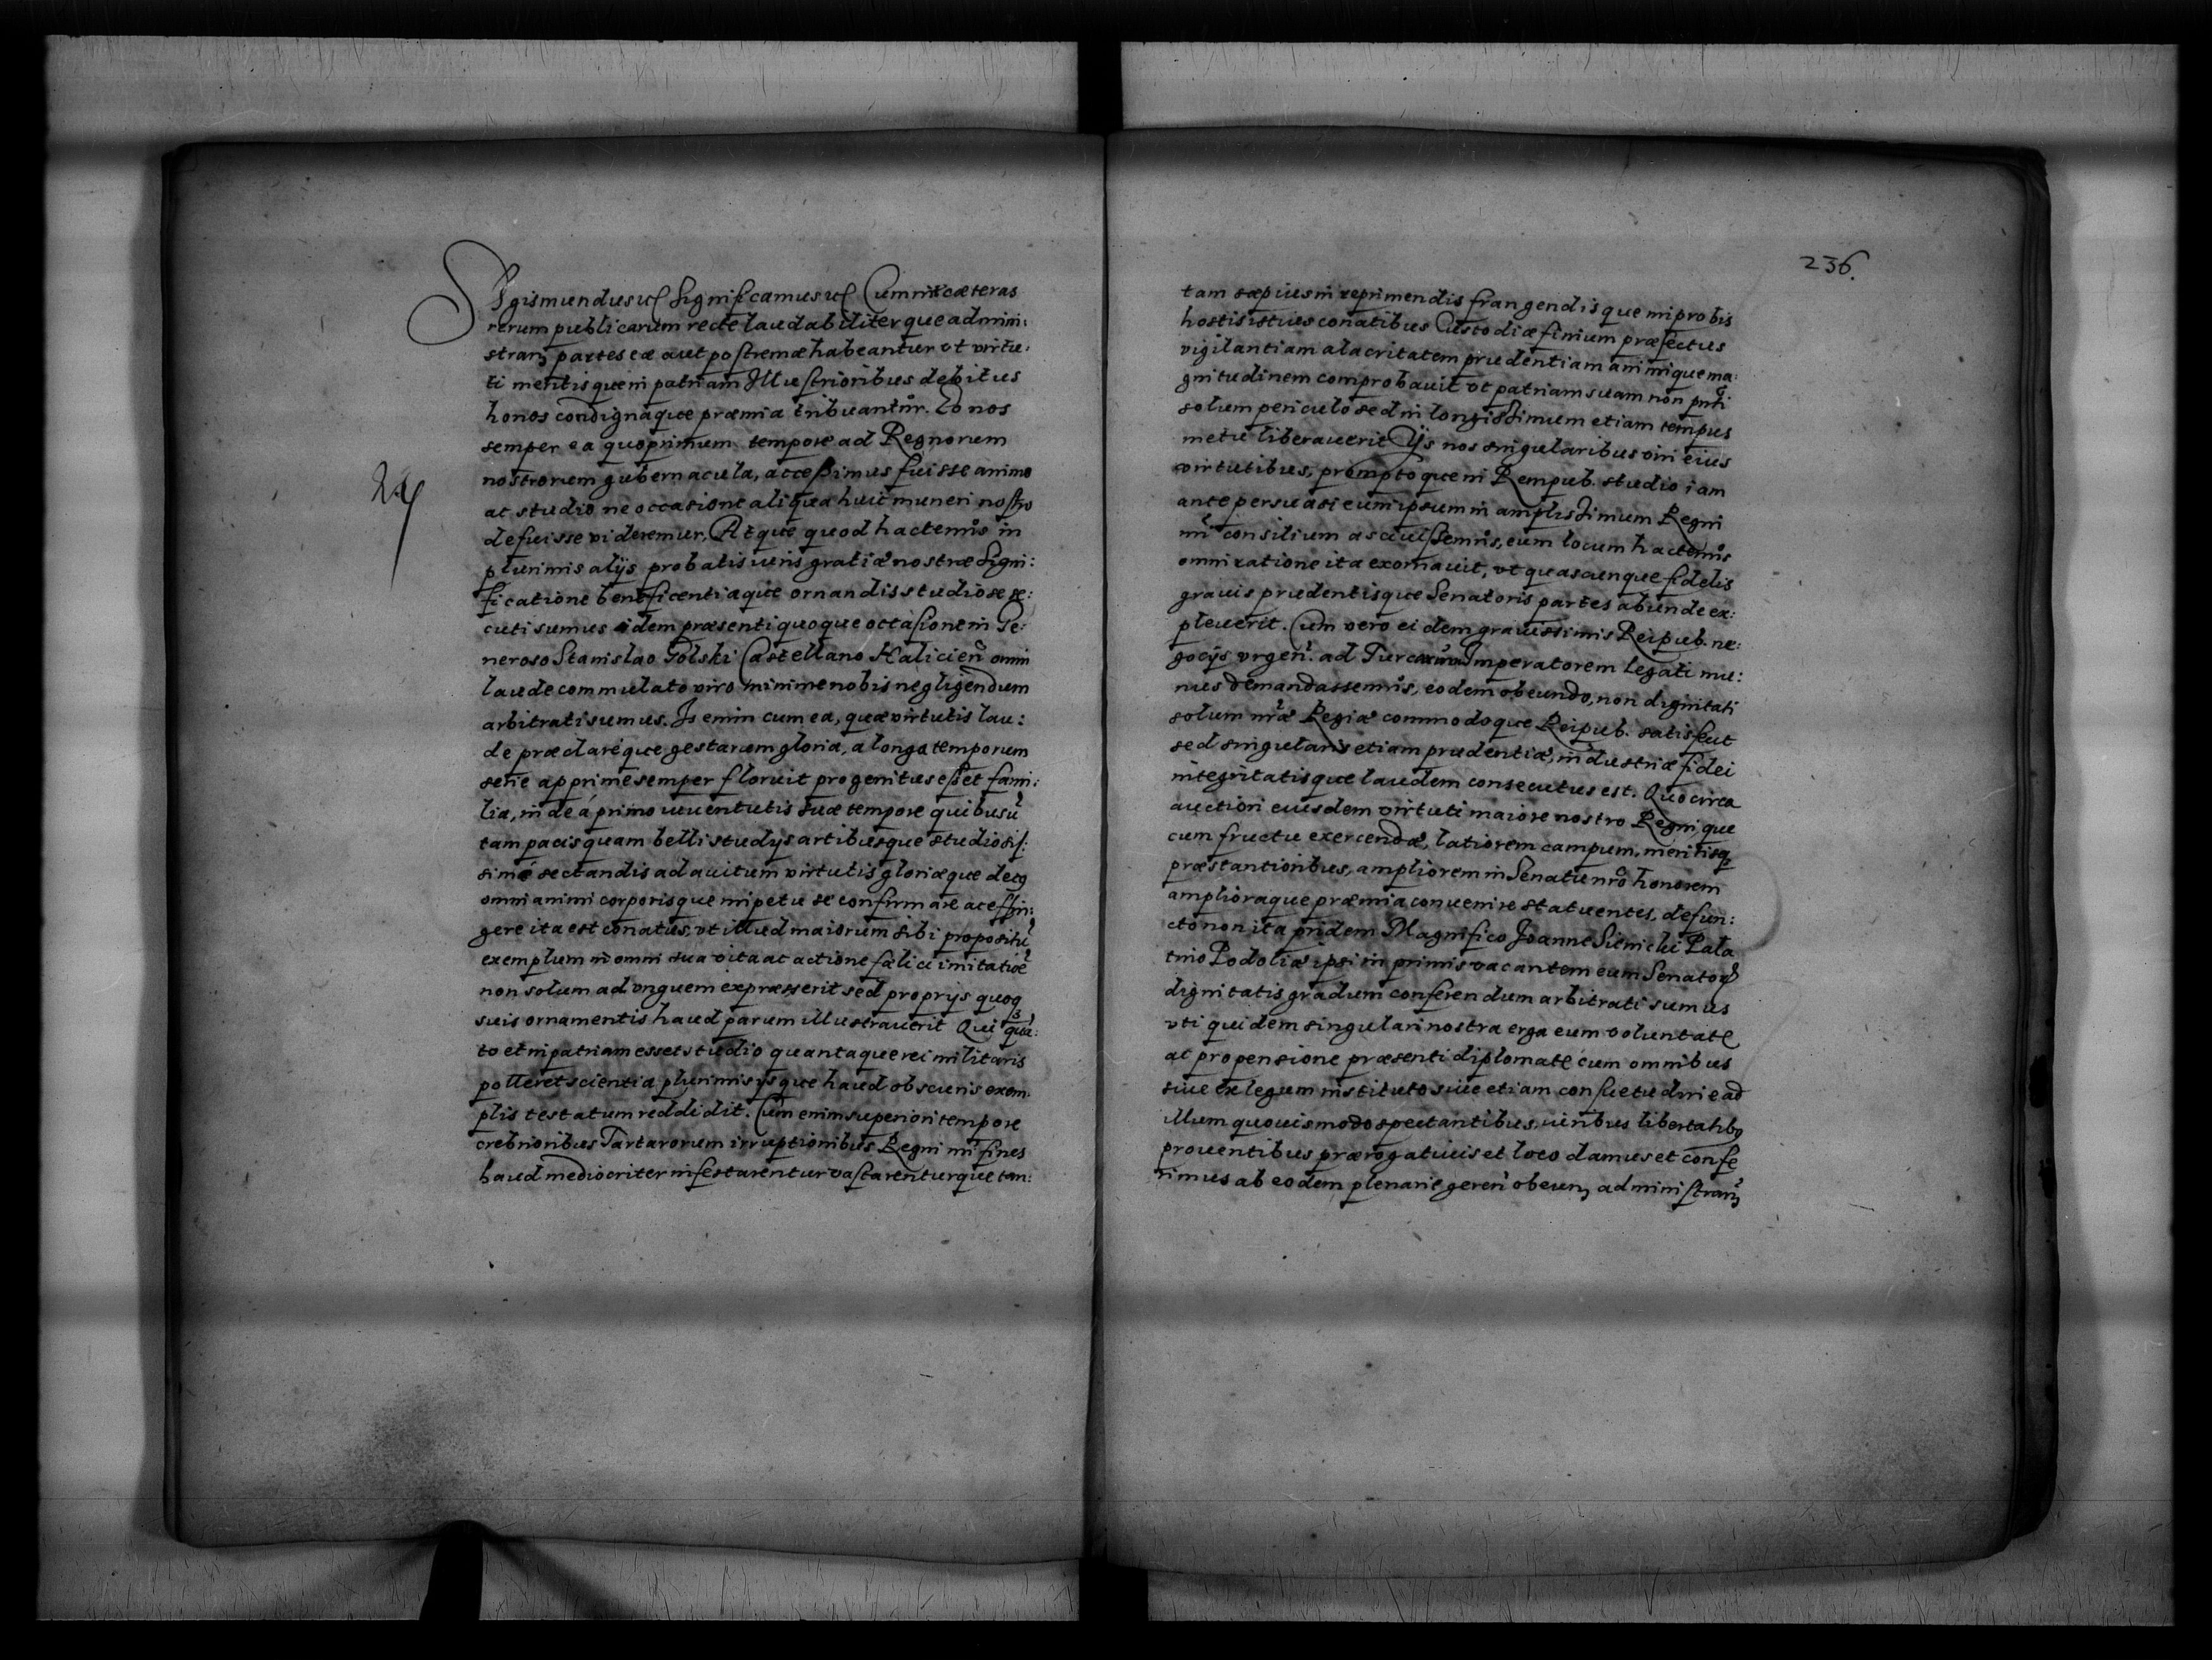 Sigismundus etc Significamus etc Cum inter cæteras
rerum publicarum recte laudabiliterque admini:
stran partes eæ aut postremæ habeantur vt virtu:
ti meritisque in patriam Illustrioribus debitus
honos condignaque præmia tribuantur. Eo nos
semper ea quo primum tempore ad Regnorum
nostrorum gubernacula, accessimus fuisse animo
ac studio ne occasione aliqua huic muneri nostro
defuisse videremur. Atque quod hactenus in
24
plurimis alijs probatis viris gratiæ nostræ Signi:
ficatione beneficentiaque ornandis studiose se:
cuti sumus idem præsenti quoque occasione in Ge:
neroso Stanislao Golski Castellano Halicien omni
laude commulato viro minime nobis negligendum
arbitrati sumus. Is enim cum ea, quæ virtutis lau:
de præclaréque gestarum gloria, a longa temporum
serie apprime semper floruit progenitus esset fami:
lia, inde á primo iuuentutis suæ tempore quibusu
tam pacis quam belli studijs artibusque studiosis:
simé sectandis ad auitum virtutis gloriæque decus
omni animi corporisque impetu se confirmare ac effin:
gere ita est conatus, vt illud maiorum sibi propositu
exemplum in omni sua vita ac actione fælici imitatioe
non solum ad vnguem expresserit sed proprijs quoq
suis ornamentis haud parum illustrauerit Qui qua:
to et in patriam esset studio quantaque rei militaris
polleret scientia plurimis ijsque haud obscuris exem:
plis testatum reddidit. Cum enim superiori tempore
crebrioribus Tartarorum irruptionibus Regni nri fines
haud mediocriter infestarentur vastarenturque tan:
236.
tam sæpius in reprimendis frangendisque improbis
hostis istius conatibus Custodiæ finium præfectus
vigilantiam alacritatem prudentiam animique ma:
gnitudinem comprobauit vt patriam suam non pnti
solum periculo sed in longissimum etiam tempus
metu liberauerit Ijs nos singularibus viri eius
virtutibus, promptoque in Rempub. studio iam
ante persuasi eum ipsum in amplissimum Regni
nri consilium asciuissemus, eum locum hactenus
omni ratione ita exornauit, vt quascunque fidelis
grauis prudentisque Senatoris partes abunde ex:
pleuerit. Cum vero ei dem grauissimis Reipub. ne:
gocijs vrgen. ad Turcarum Imperatorem Legati mu:
nus demandassemus, eodem obeundo, non dignitati
solum nræ Regiæ commodoque Reipub. satisfecit
sed singularis etiam prudentiæ, industriæ fidei
integritatisque laudem consecutus est. Quocirca
auctiori eiusdem virtuti maiore nostro Regnique
cum fructu exercendæ, latiorem campum, meritisq
præstantioribus, ampliorem in Senatu nro honorem
amplioraque præmia conuenire statuentes, defun:
cto non ita pridem Magnifico Joanne Sienicki Pala
tino Podoliæ ipsi in primis vacantem eum Senatory
dignitatis gradum conferendum arbitrati sumus
vti quidem singulari nostra erga eum voluntate
ac propensione præsenti diplomate cum omnibus
siue ex legum instituto siue etiam consuetudine ad
illum quouis modo spectantibus, iuribus libertatibus
prouentibus prærogatiuis et loco damus et confe
rimus ab eodem plenarie geren obeun administran